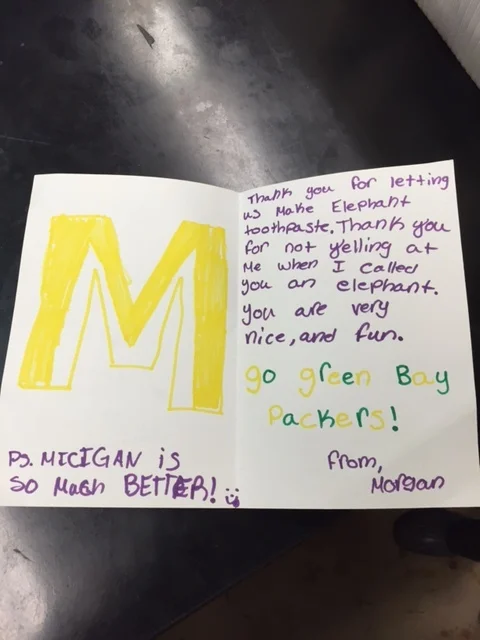 M
Ps. MICIGAN is
SO Much BETTER!
Thank you for letting
us Make Elephant
toothpaste. Thank you
for not yelling at
Me when I called
you an elephant.
you are very
nice, and fun.
go green Bay
Packers!
from,
Morgan